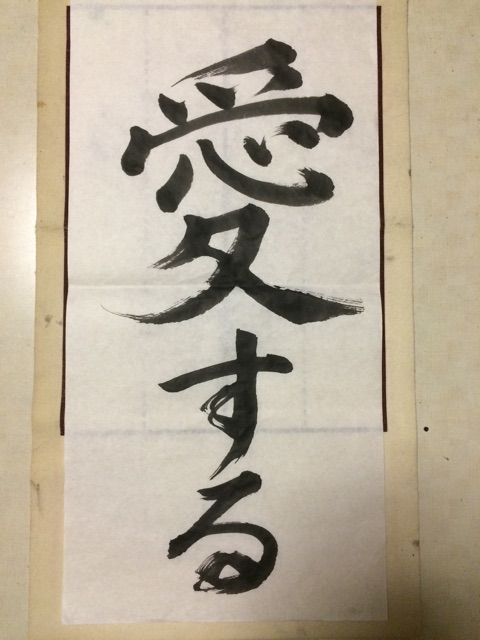 愛する